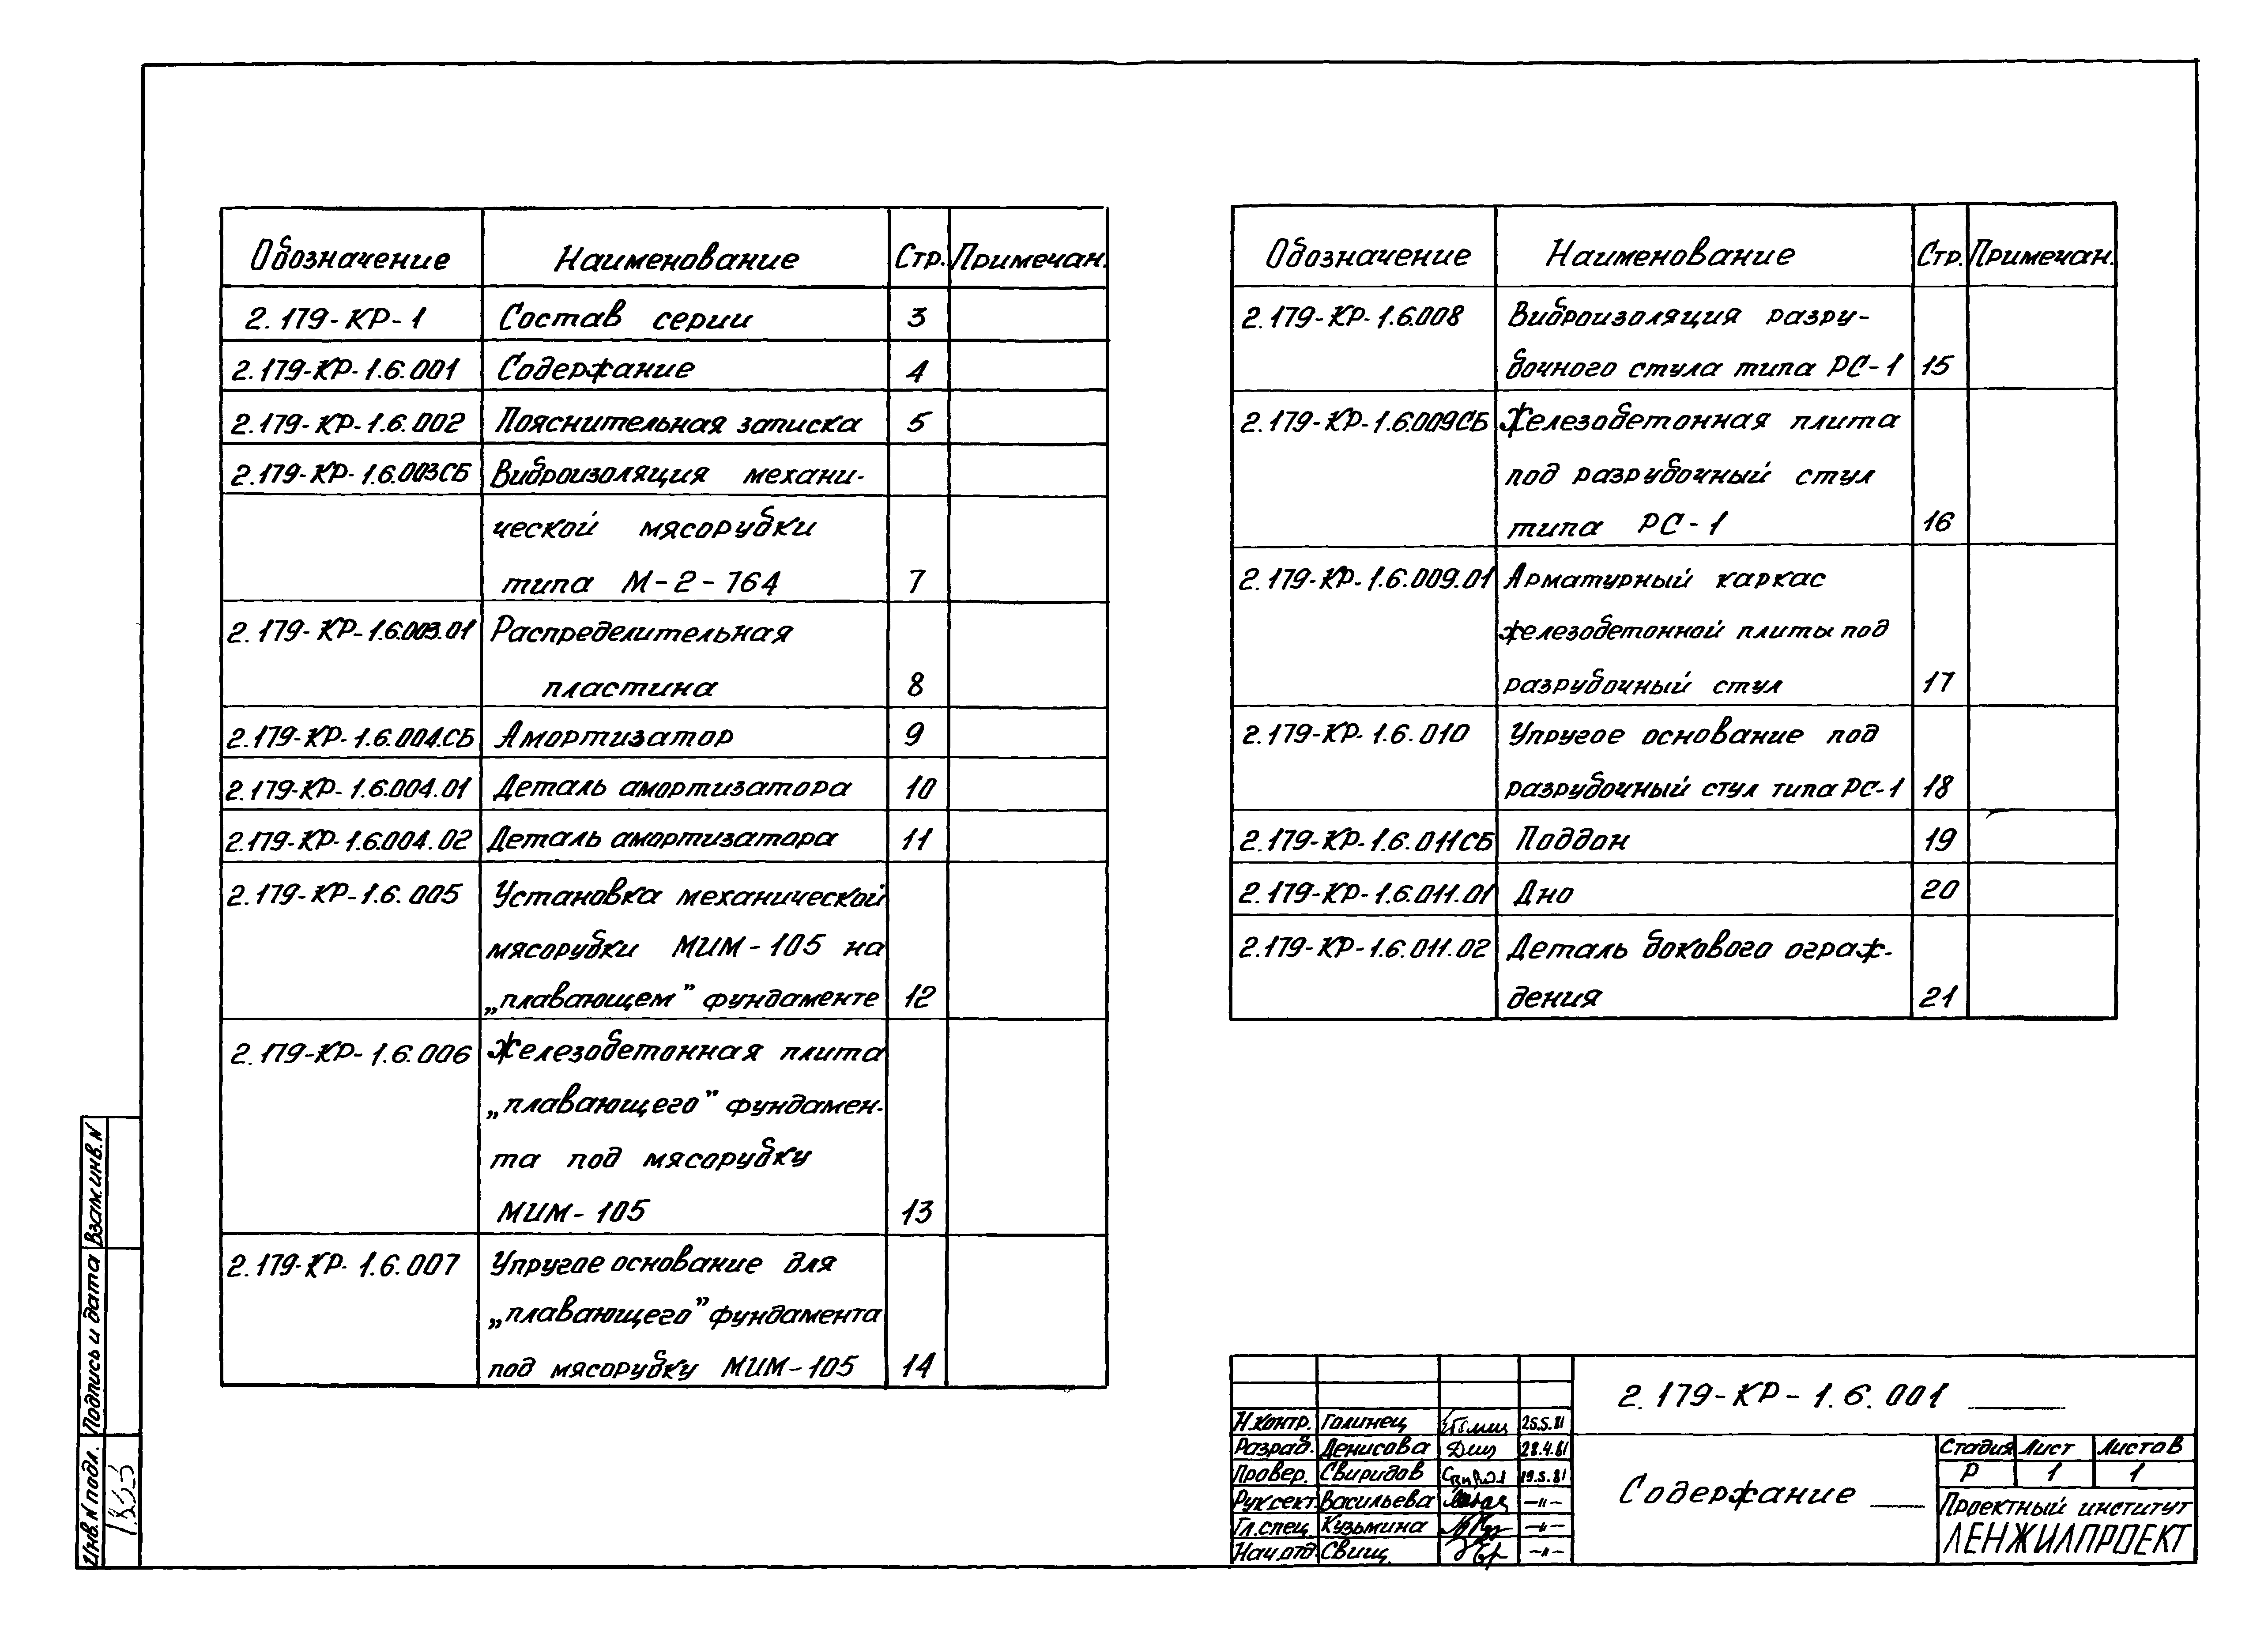 Обозначение Наименование Стр. Примечан.
2.179-КР-1 Состав серии 3
2.179-КР-1.6.001 Содержание 4
2.179-КР-1.6.002 Пояснительная записка 5
2.179-КР-1.6.003СБ Виброизоляция механи-
ческой мясорубки
типа М-2-764 7
2.179-КР-1.6.003.01 Распределительная
пластина 8
2.179-КР-1.6.004.СБ Амортизатор 9
2.179-КР-1.6.004.01 Деталь амортизатора 10
2.179-КР-1.6.004.02 Деталь амортизатора 11
2.179-КР-1.6.005 Установка механической
мясорубки МИМ-105 на
„плавающем” фундаменте 12
2.179-КР-1.6.006 Железобетонная плита
„плавающего” фундамен-
та под мясорубку
МИМ-105 13
2.179-КР-1.6.007 Упругое основание для
„плавающего” фундамента
под мясорубку МИМ-105 14
Обозначение Наименование Стр. Примечан.
2.179-КР-1.6.008 Виброизоляция разру-
бочного стула типа РС-1 15
2.179-КР-1.6.009СБ Железобетонная плита
под разрубочный стул
типа РС-1 16
2.179-КР-1.6.009.01 Арматурный каркас
железобетонной плиты под
разрубочный стул 17
2.179-КР-1.6.010 Упругое основание под
разрубочный стул типа РС-1 18
2.179-КР-1.6.011СБ Поддон 19
2.179-КР-1.6.011.01 Дно 20
2.179-КР-1.6.011.02 Деталь бокового ограж-
дения 21
Взам.инв.N
Подпись и дата
Инв.N подл.
2.179-КР-1.6.001
Н.контр. Голинец 25.5.81
Разраб. Денисова 28.4.81
Провер. Свиридов 19.5.81
Рук.сект. Васильева -"-
Гл.спец. Кузьмина -"-
Нач.отд Свищ. -"-
Содержание
Стадия Лист Листов
Р 1 1
Проектный институт
ЛЕНЖИЛПРОЕКТ